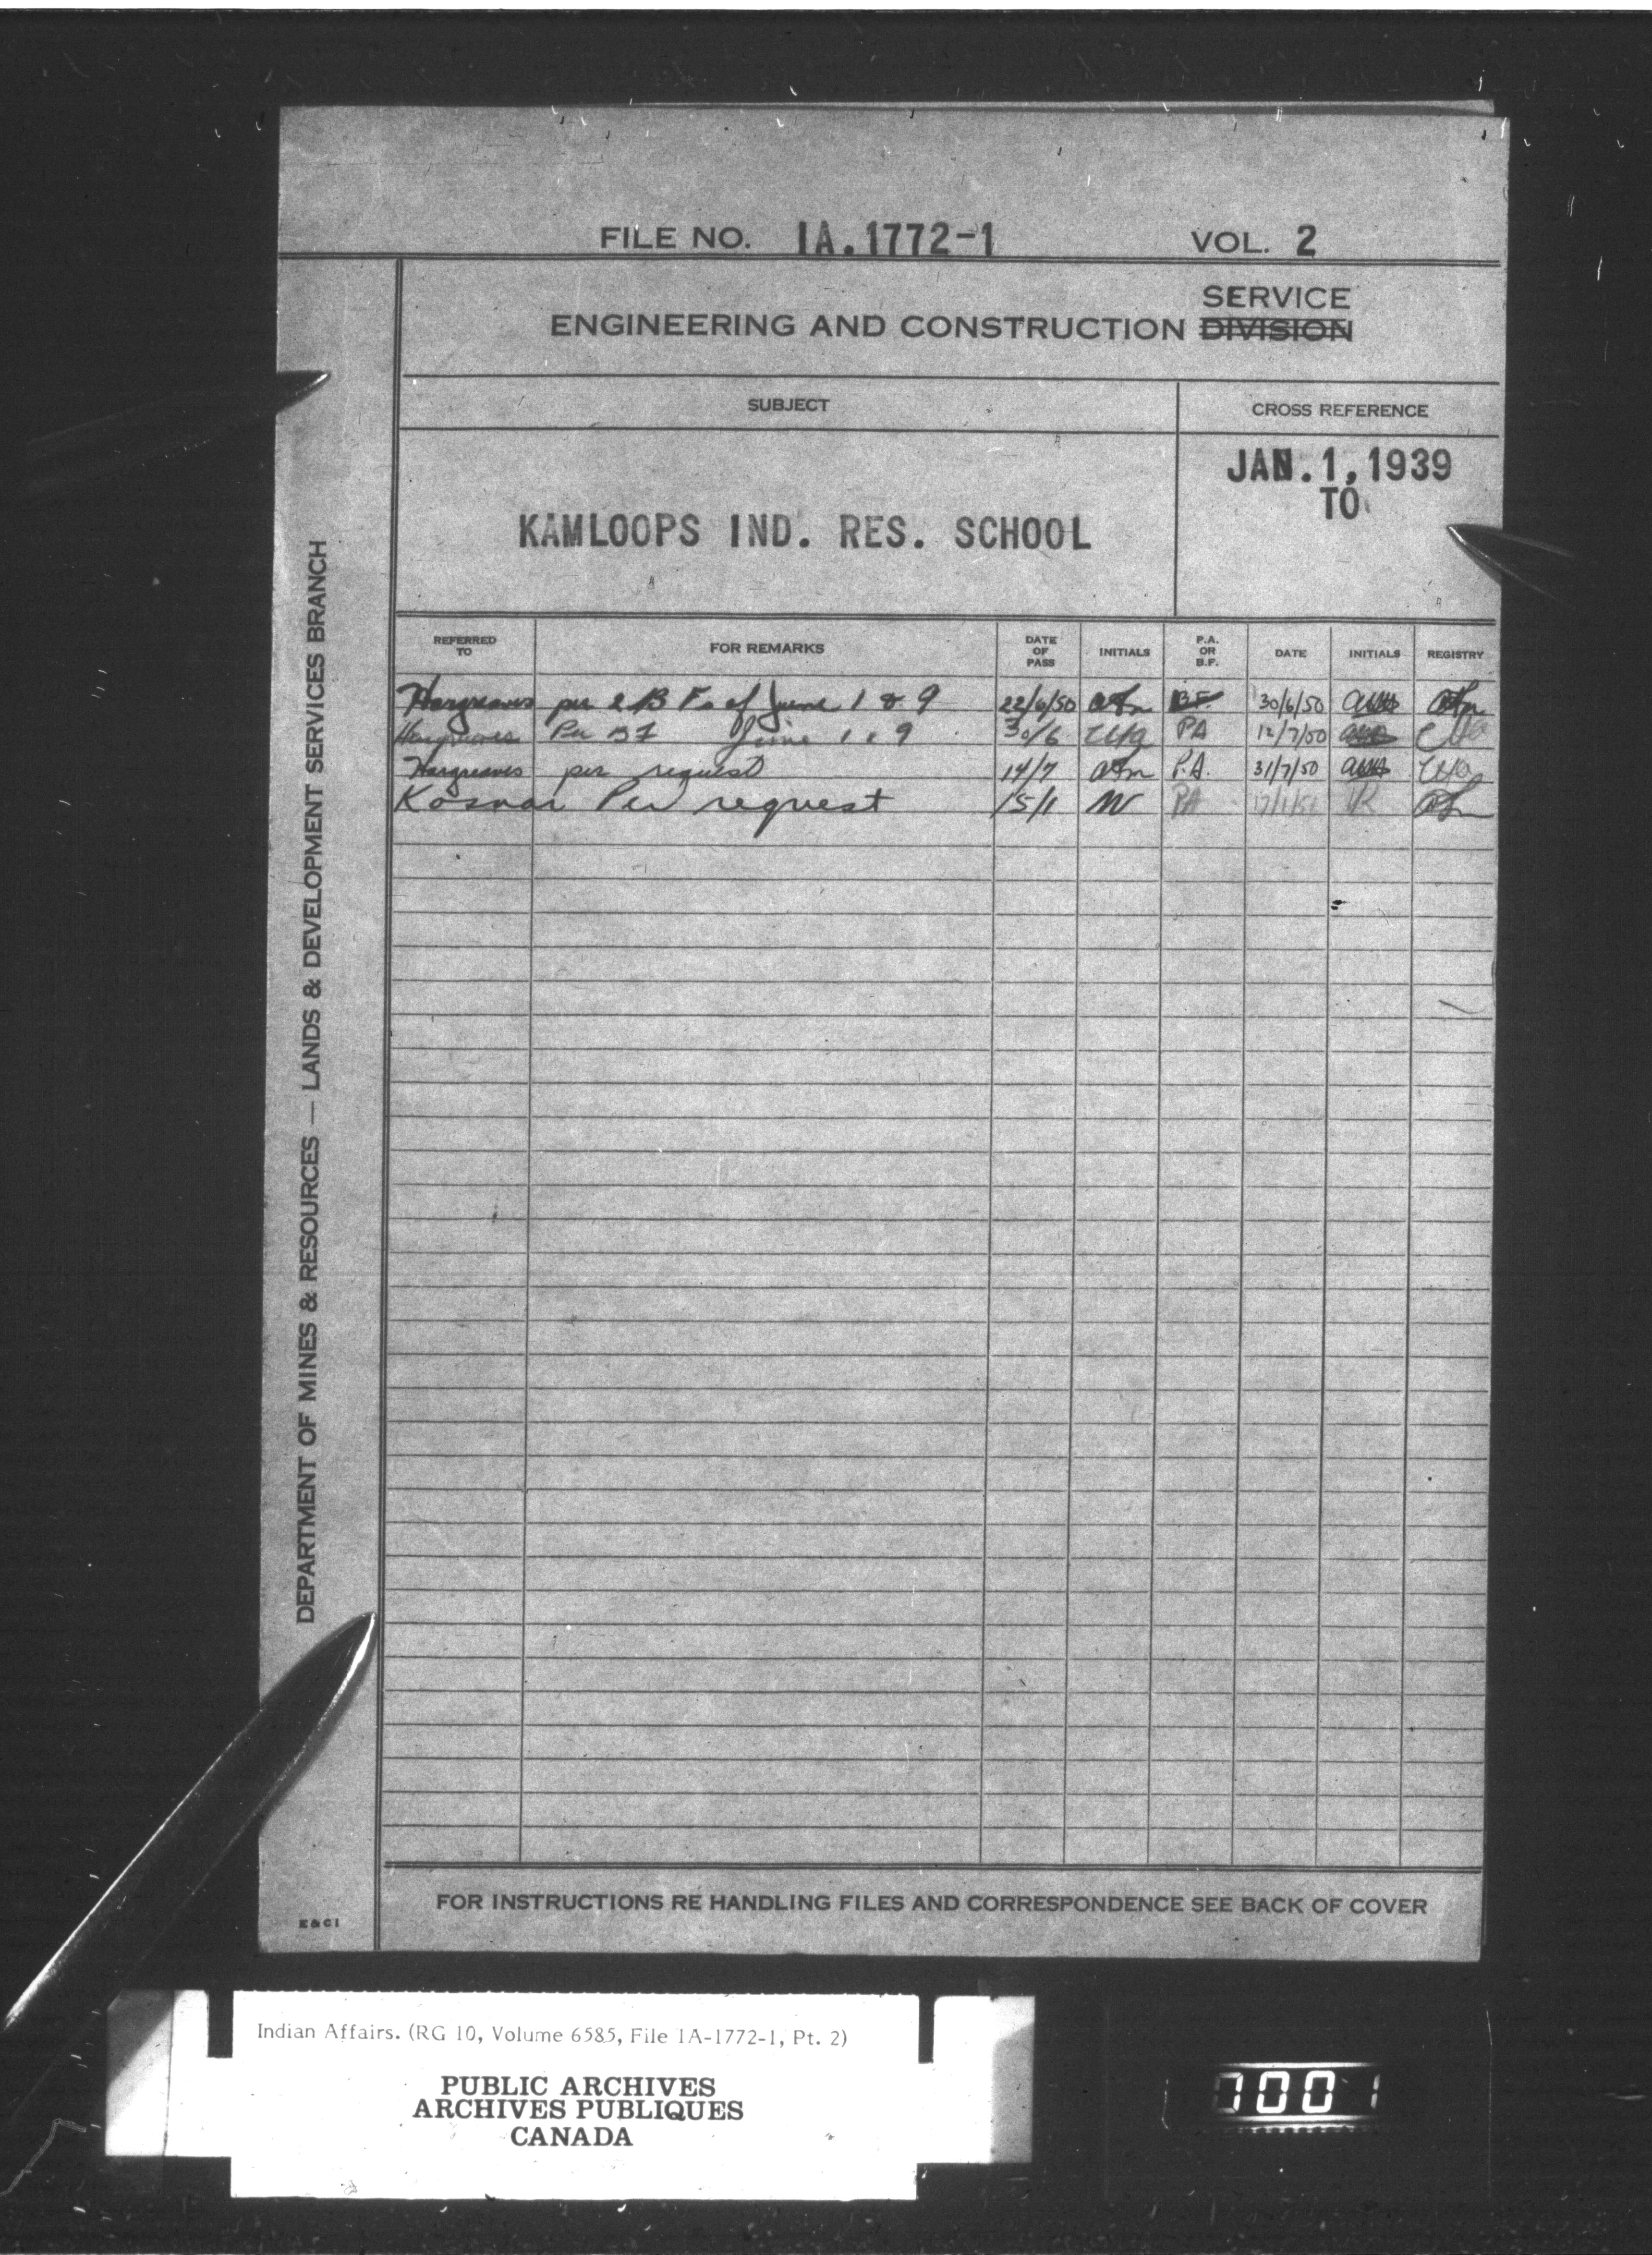 FILE NO. IA.1772-1 VOL. 2
SERVICE
ENGINEERING AND CONSTRUCTION DIVISION
SUBJECT CROSS REFERENCE
JAN. 1, 1939
TO
KAMLOOPS IND. RES. SCHOOL
REFERRED TO FOR REMARKS DATE OF PASS INITIALS P.A. OR B.F. DATE INITIALS REGISTRY
Hargreaves per 2 B Fs of June 1 & 9 22/6/50 BF 30/6/50
Hargreaves Per BF June 1 & 9 30/6 PA 12/7/50
Hargreaves per request 14/7 P.A. 31/7/50
Kosnar Per request 15/1 PA 17/1/51
DEPARTMENT OF MINES & RESOURCES — LANDS & DEVELOPMENT SERVICES BRANCH
FOR INSTRUCTIONS RE HANDLING FILES AND CORRESPONDENCE SEE BACK OF COVER
E & C 1
Indian Affairs. (RG 10, Volume 6585, File 1A-1772-1, Pt. 2)
PUBLIC ARCHIVES
ARCHIVES PUBLIQUES
CANADA